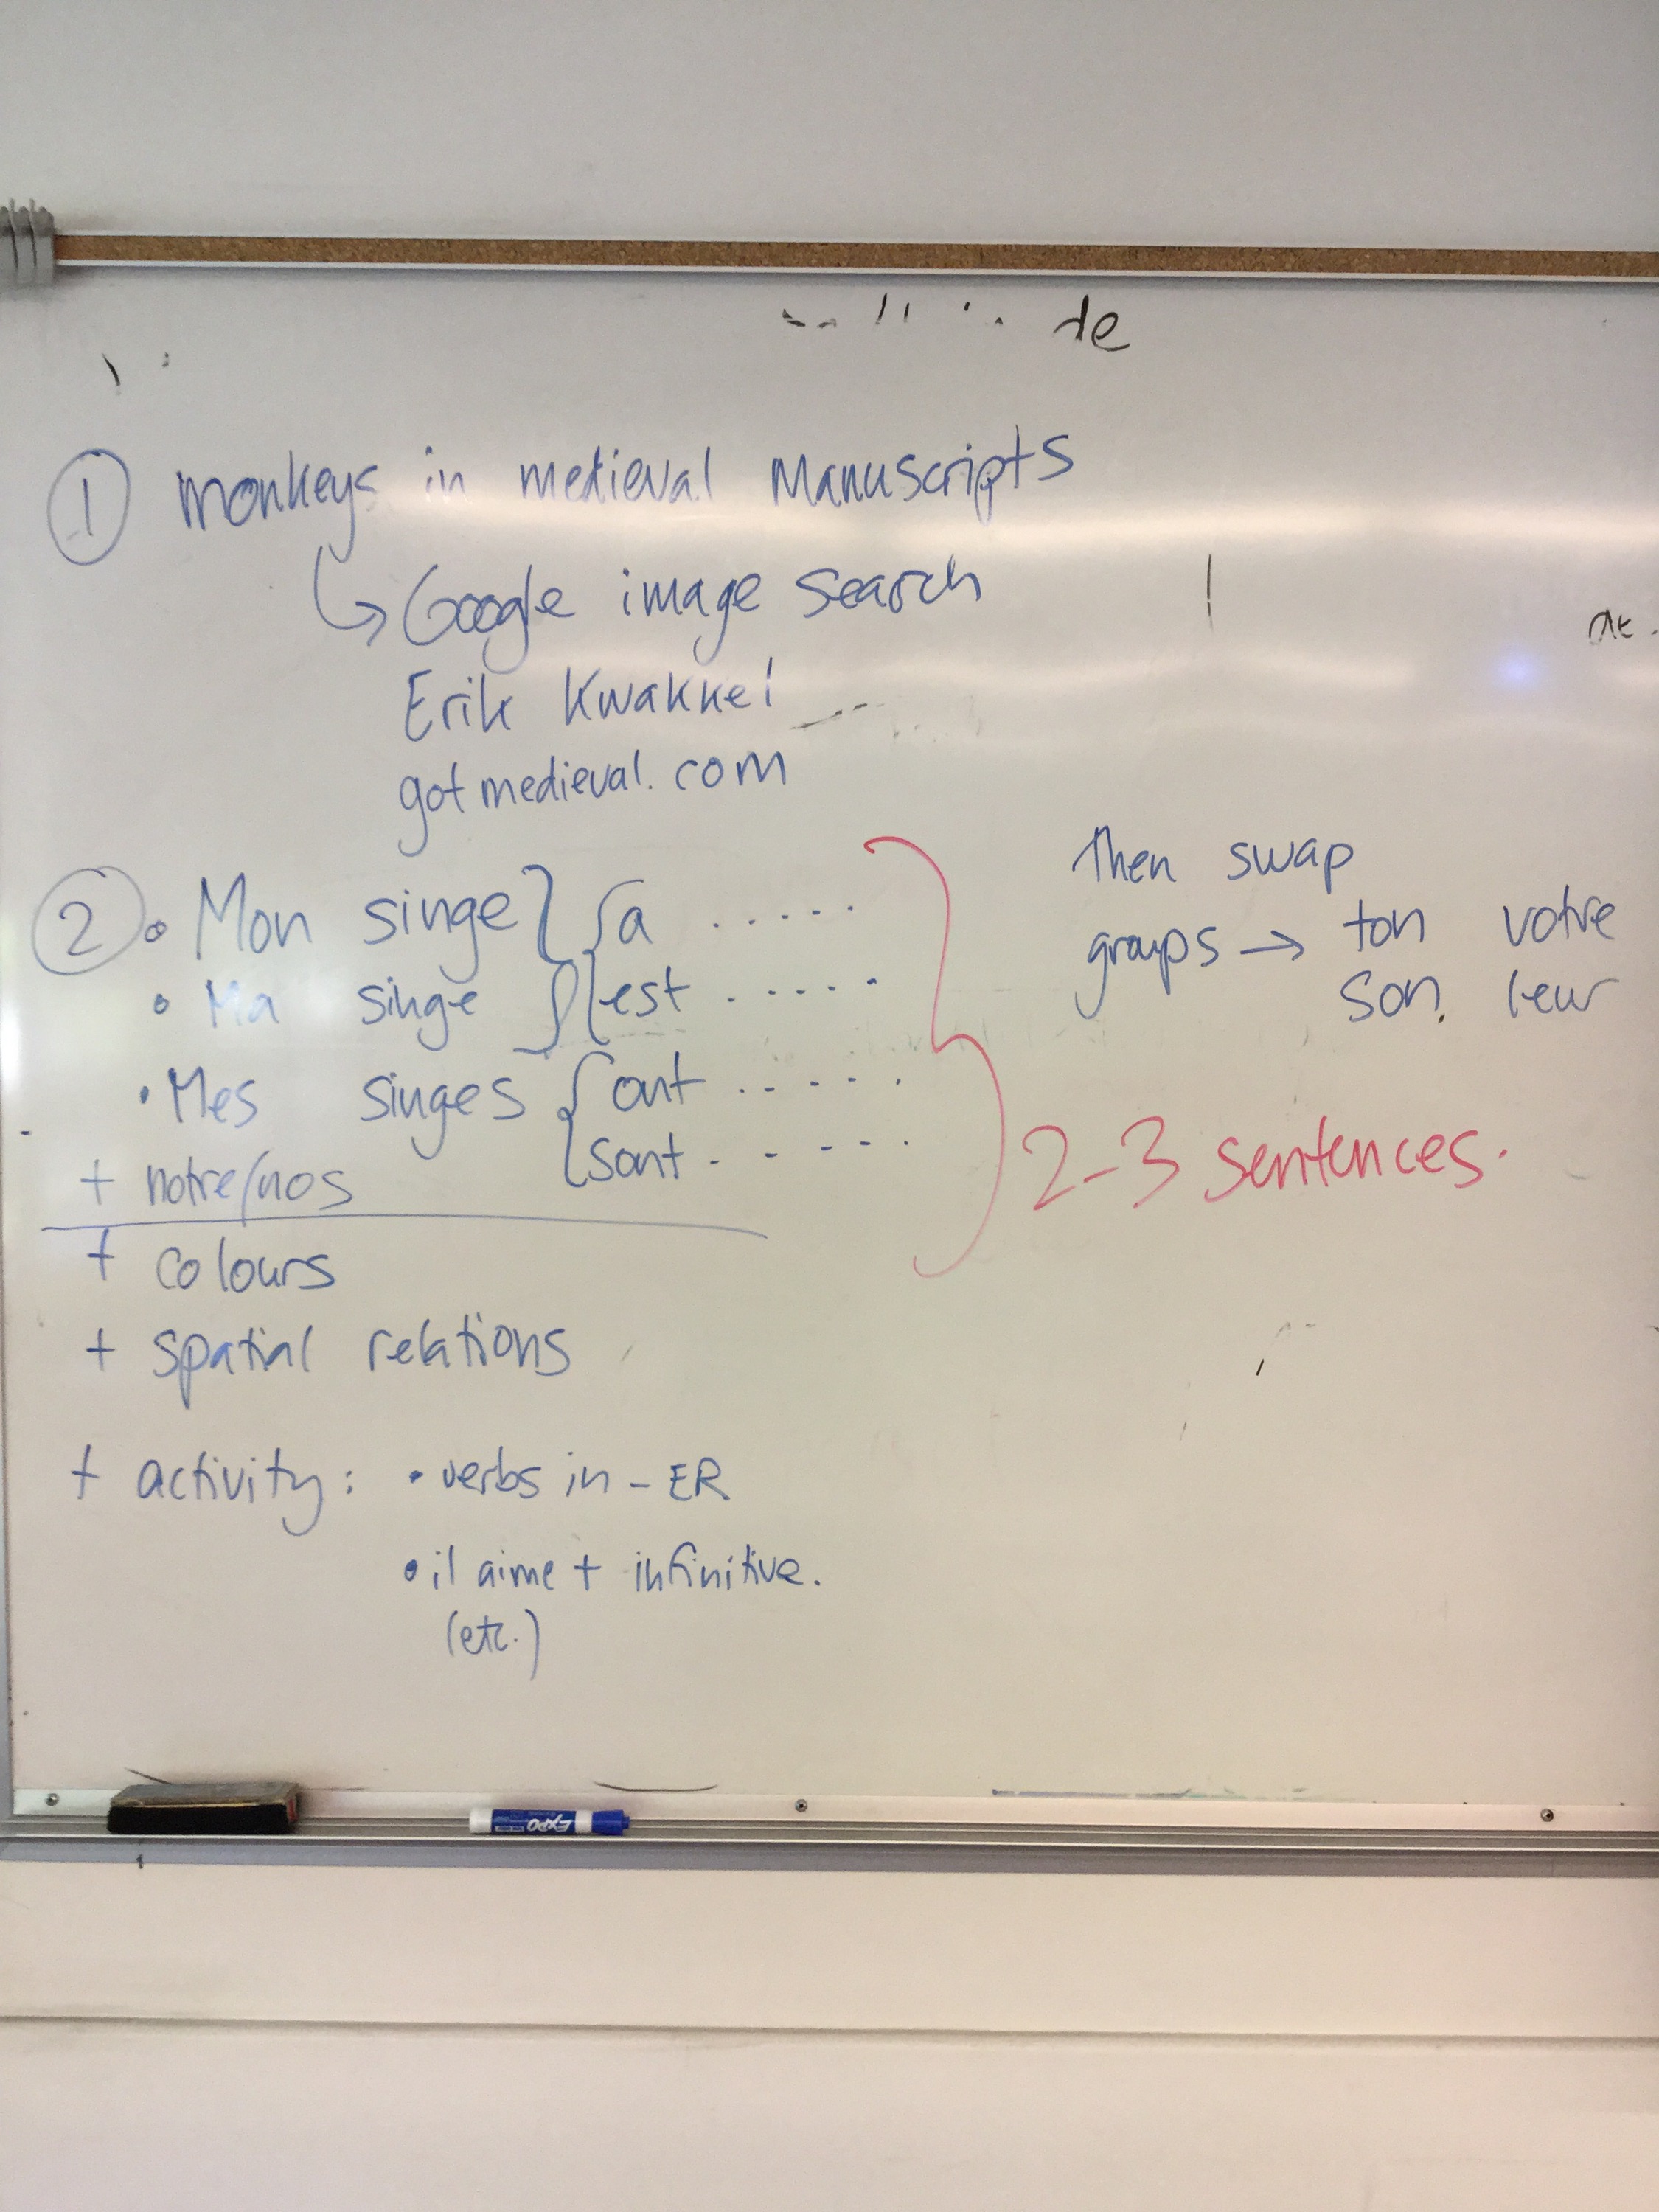 de
① monkeys in medieval manuscripts
↳ Google image search
Erik Kwakkel
gotmedieval.com
② • Mon singe } { a .....
• Ma singe } { est .....
• Mes singes { ont .....
{ sont .....
+ notre/nos
2-3 sentences.
Then swap
groups → ton votre
son. leur
+ colours
+ spatial relations
+ activity: • verbs in -ER
• il aime + infinitive.
(etc.)
EXPO